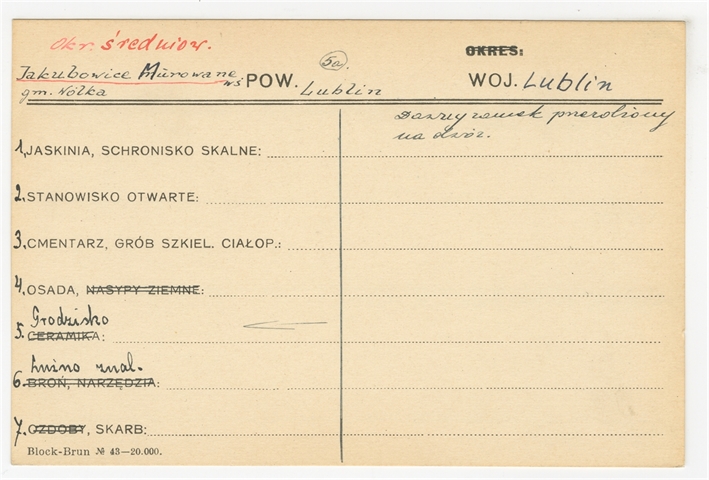 Okr. średniow.
5a.
OKRES:
Jakubowice Murowane wś POW. Lublin WOJ. Lublin
gm. Wólka
Dawny zamek przerobiony
na dwór.
1, JASKINIA, SCHRONISKO SKALNE:
2. STANOWISKO OTWARTE:
3, CMENTARZ, GRÓB SZKIEL. CIAŁOP.:
4, OSADA, NASYPY ZIEMNE:
Grodzisko
5. CERAMIKA:
Luźno znal.
6. BROŃ, NARZĘDZIA:
7. OZDOBY, SKARB:
Block-Brun № 43—20.000.